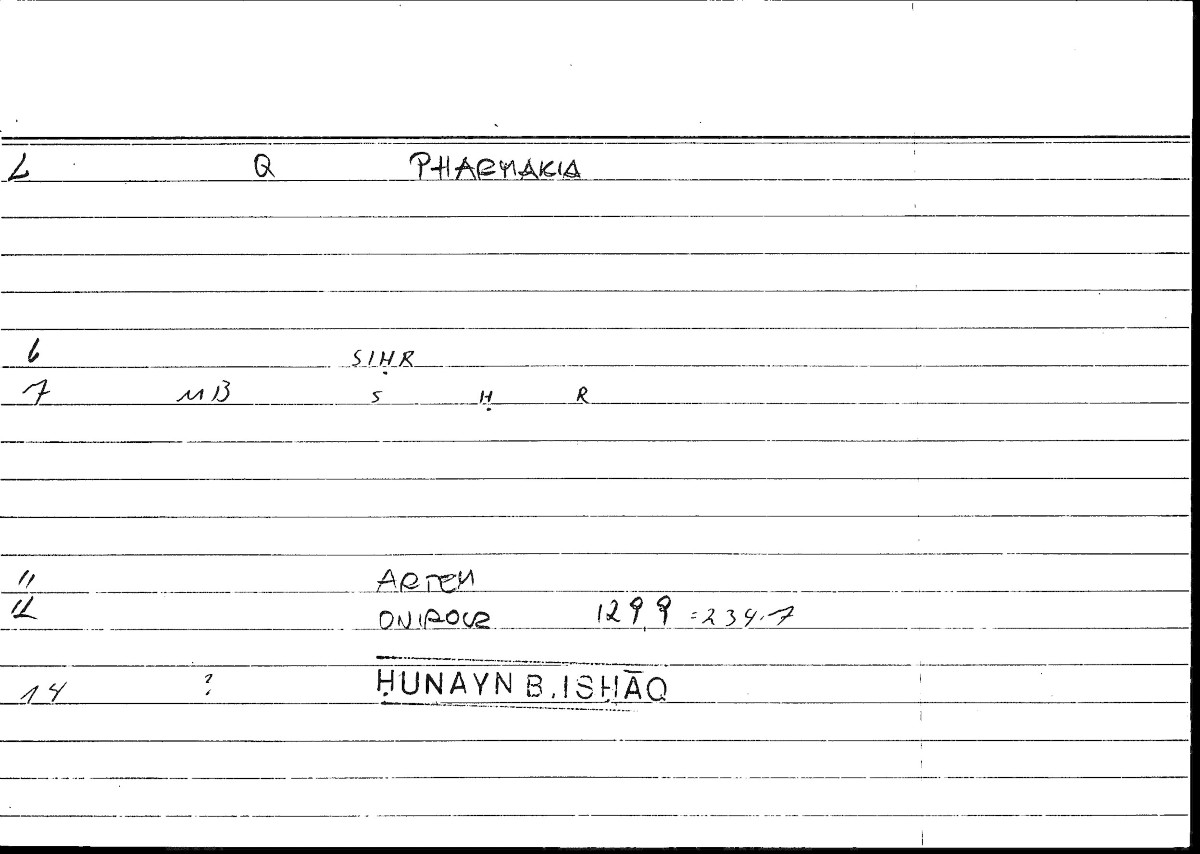 L Q PHARMAKIA
6 SIḤR
7 MB S Ḥ R
11 ARTEM
12 ONIROCR 129,9 = 234.7
14 ? ḤUNAYN B. ISḤĀQ